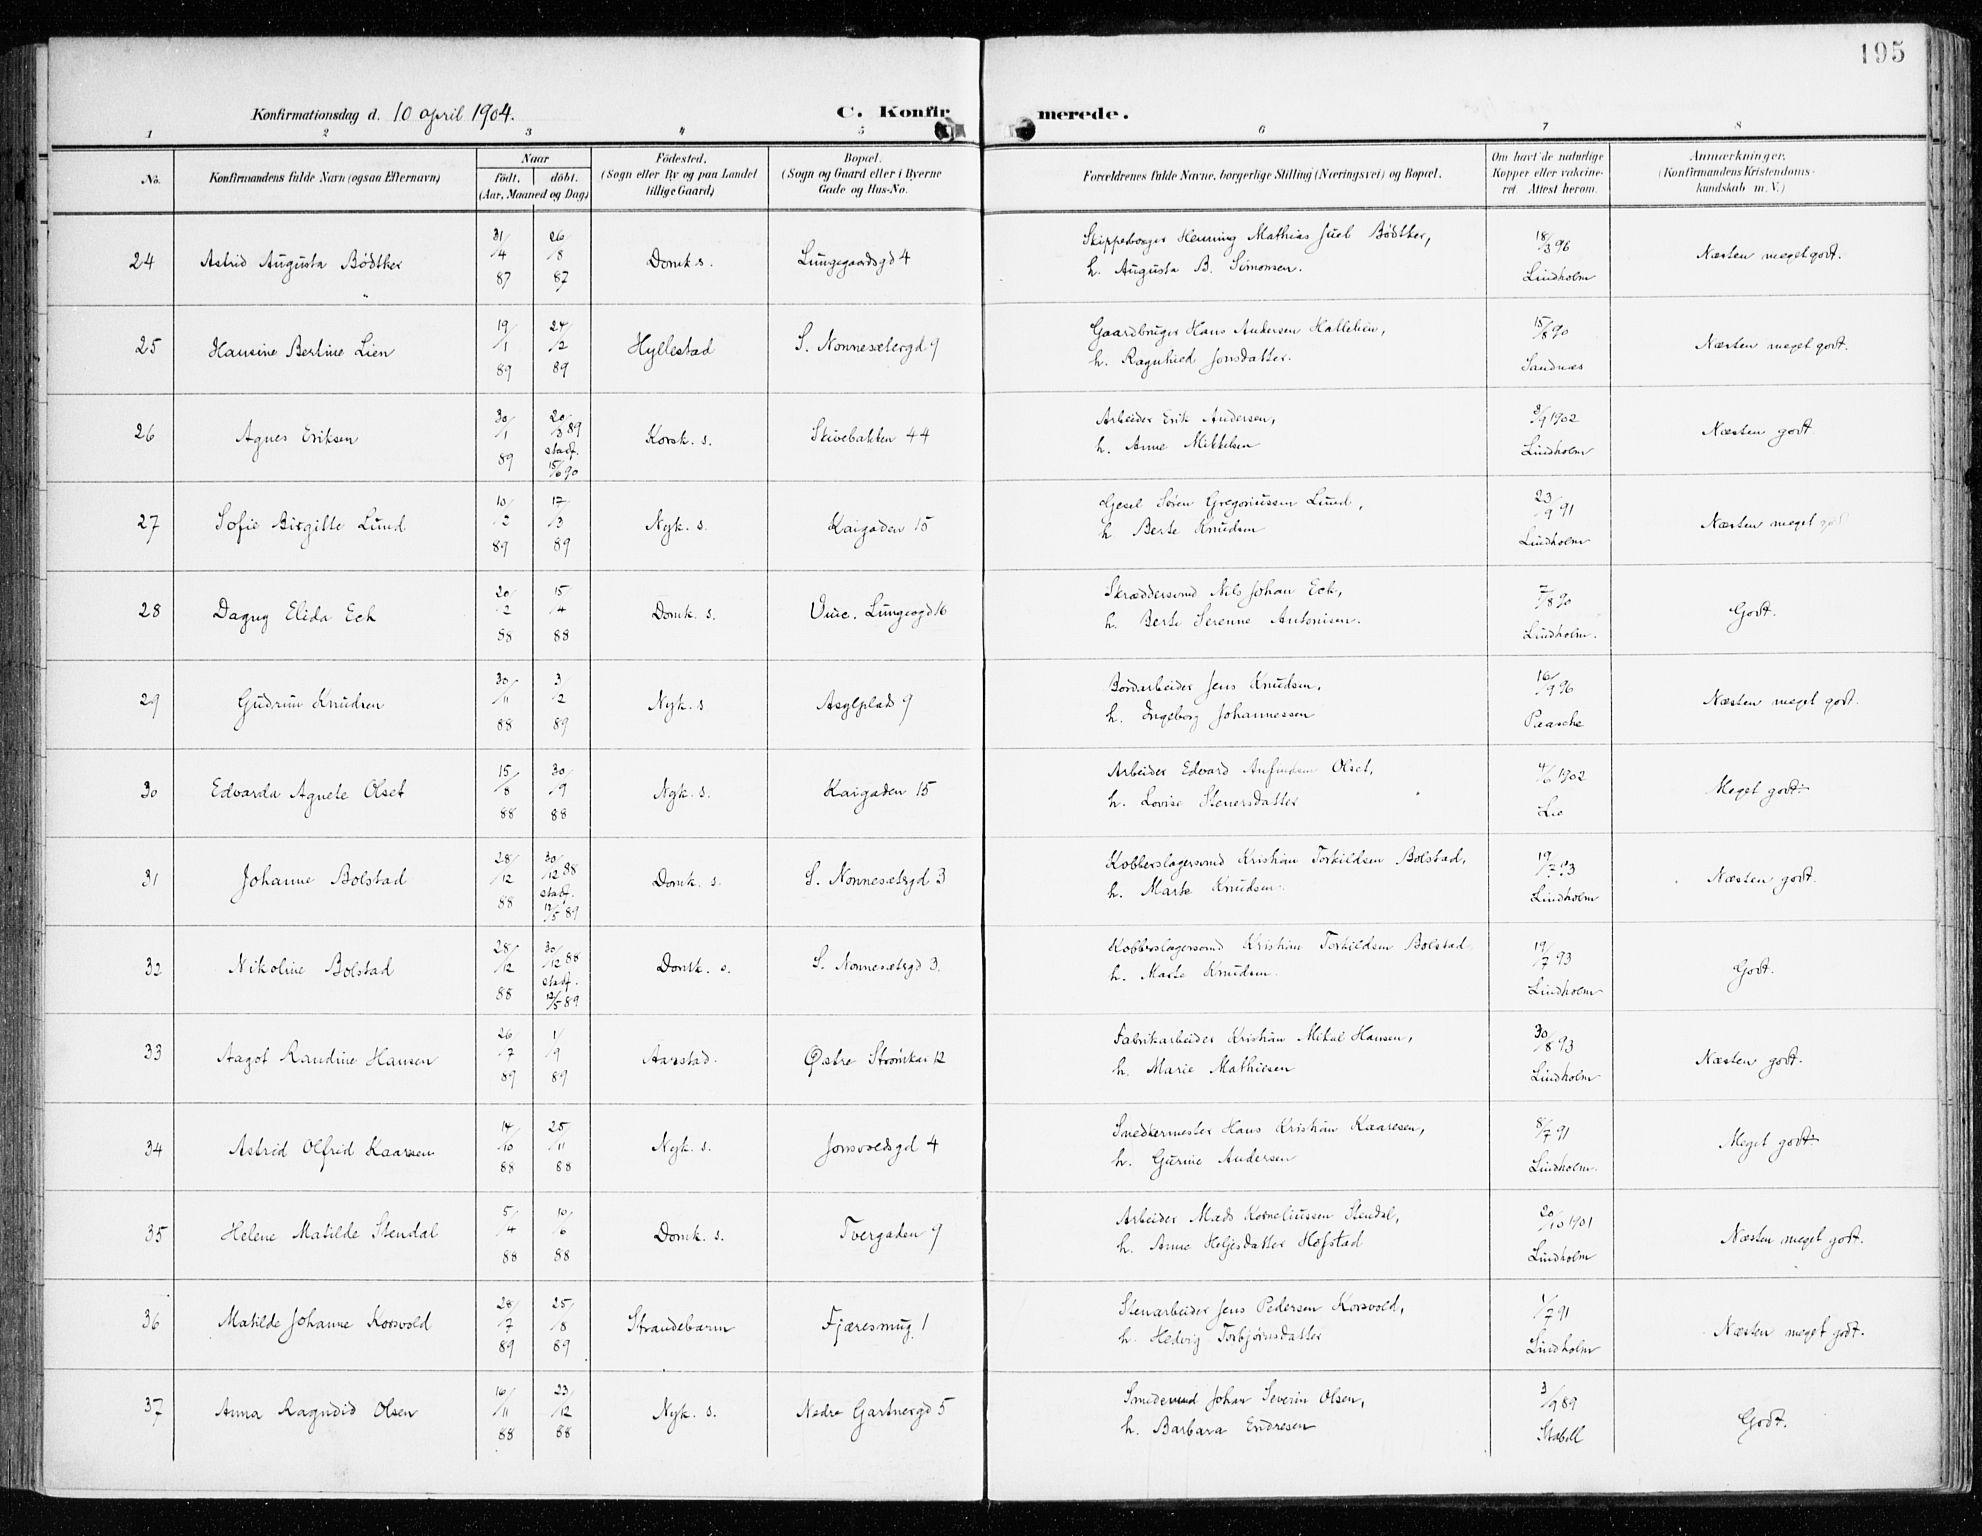 195
Konfirmationsdag d. 10 april 1904.
C. Konfirmerede.
1 2 3 4 5 6 7 8
No.
Konfirmandens fulde Navn (ogsaa Efternavn)
Naar
født. døbt.
(Aar, Maaned og Dag)
Fødested.
(Sogn eller By og paa Landet
tillige Gaard)
Bopæl.
(Sogn og Gaard eller i Byerne
Gade og Hus-No.
Forældrenes fulde Navne, borgerlige Stilling (Næringsvei) og Bopæl.
Om havt de naturlige
Kopper eller vakcine-
ret. Attest herom.
Anmærkninger.
(Konfirmandens Kristendoms-
kundskab m. V.)
24 Astrid Augusta Bødtker 31/4 87 26/8 87 Domk. s. Lungegaardsgd 4
Skipperborger Henning Mathias Juel Bødtker,
h. Augusta B. Simonsen.
18/3 96 Lindholm
Næsten meget godt.
25 Hansine Bertine Lien 19/1 89 24/2 89 Hyllestad S. Nonnesætergd 9
Gaardbruger Hans Andersen Hatlelien,
h. Ragnhild Jonsdatter.
15/8 90 Sandnæs
Næsten meget godt.
26 Agnes Eriksen 30/1 89 20/3 89 stadf. 15/6 90 Korsk. s. Skivebakken 44
Arbeider Erik Andersen,
h. Anne Mikkelsen
9/9 1902 Lindholm
Næsten godt.
27 Sofie Birgitte Lund 10/2 89 17/3 89 Nyk. s. Kaigaden 15
Gjesel Søren Gregoriussen Lund,
h. Berte Knudsen
23/9 91 Lindholm
Næsten meget godt
28 Dagny Elida Eck 20/2 88 15/4 88 Domk. s. Lungegd 16
Skræddersvend Nils Johan Eck,
h. Berte Serenne Antonisen.
7/8 90 Lindholm.
Godt.
29 Gudrun Knudsen 30/11 88 3/2 89 Nyk. s Asylplads 9
Bordarbeider Jens Knudsen,
h. Ingeborg Johannessen
16/9 96 Paasche
Næsten meget godt.
30 Edvarda Agnete Olset 15/8 88 30/9 88 Nyk. s. Kaigaden 15
Arbeider Edvard Anfindsen Olset,
h. Lovise Stenersdatter
4/6 1902 Lie
Meget godt.
31 Johanne Bolstad 28/12 88 30/12 88 stadf. 12/5 89 Domk. s. S. Nonnesætergd 3
Kobberslagersvend Kristian Torkildsen Bolstad,
h. Marte Knudsen.
19/7 93 Lindholm
Næsten godt.
32 Nikoline Bolstad 28/12 88 30/12 88 stadf. 12/5 89 Domk. s. S. Nonnesætergd 3.
Kobberslagersvend Kristian Torkildsen Bolstad
h. Marte Knudsen.
19/7 93 Lindholm
Godt.
33 Aagot Randine Hansen 26/7 89 1/9 89 Aarstad. Østre Strømkai 12
Fabrikarbeider Kristian Mikal Hansen,
h. Marie Mathiesen
30/8 93 Lindholm
Næsten godt.
34 Astrid Olfrid Kaarsen 14/10 88 25/11 88 Nyk. s. Jonsvoldsgd 4
Snedkermester Hans Kristian Kaaresen,
h. Gurine Andersen
8/7 91 Lindholm.
Meget godt.
35 Helene Matilde Stendal 5/4 88 10/6 88 Domk. s. Tvergaden 9
Arbeider Mads Korneliussen Stendal,
h. Anne Heljesdatter Hofstad
20/10 1901 Lindholm
Næsten meget godt.
36 Matilde Johanne Korsvold 28/7 89 25/8 89 Strandebarm Fjæresmug 1
Stenarbeider Jens Pedersen Korsvold,
h. Hedvig Torbjørnsdatter
1/7 91 Lindholm
Næsten meget godt.
37 Anna Ragndid Olsen 16/11 88 23/12 88 Nyk. s. Nedre Gartnergd 5
Smedsvend Johan Severin Olsen,
h. Barbara Endresen
3/9 89 Stabell
Godt.